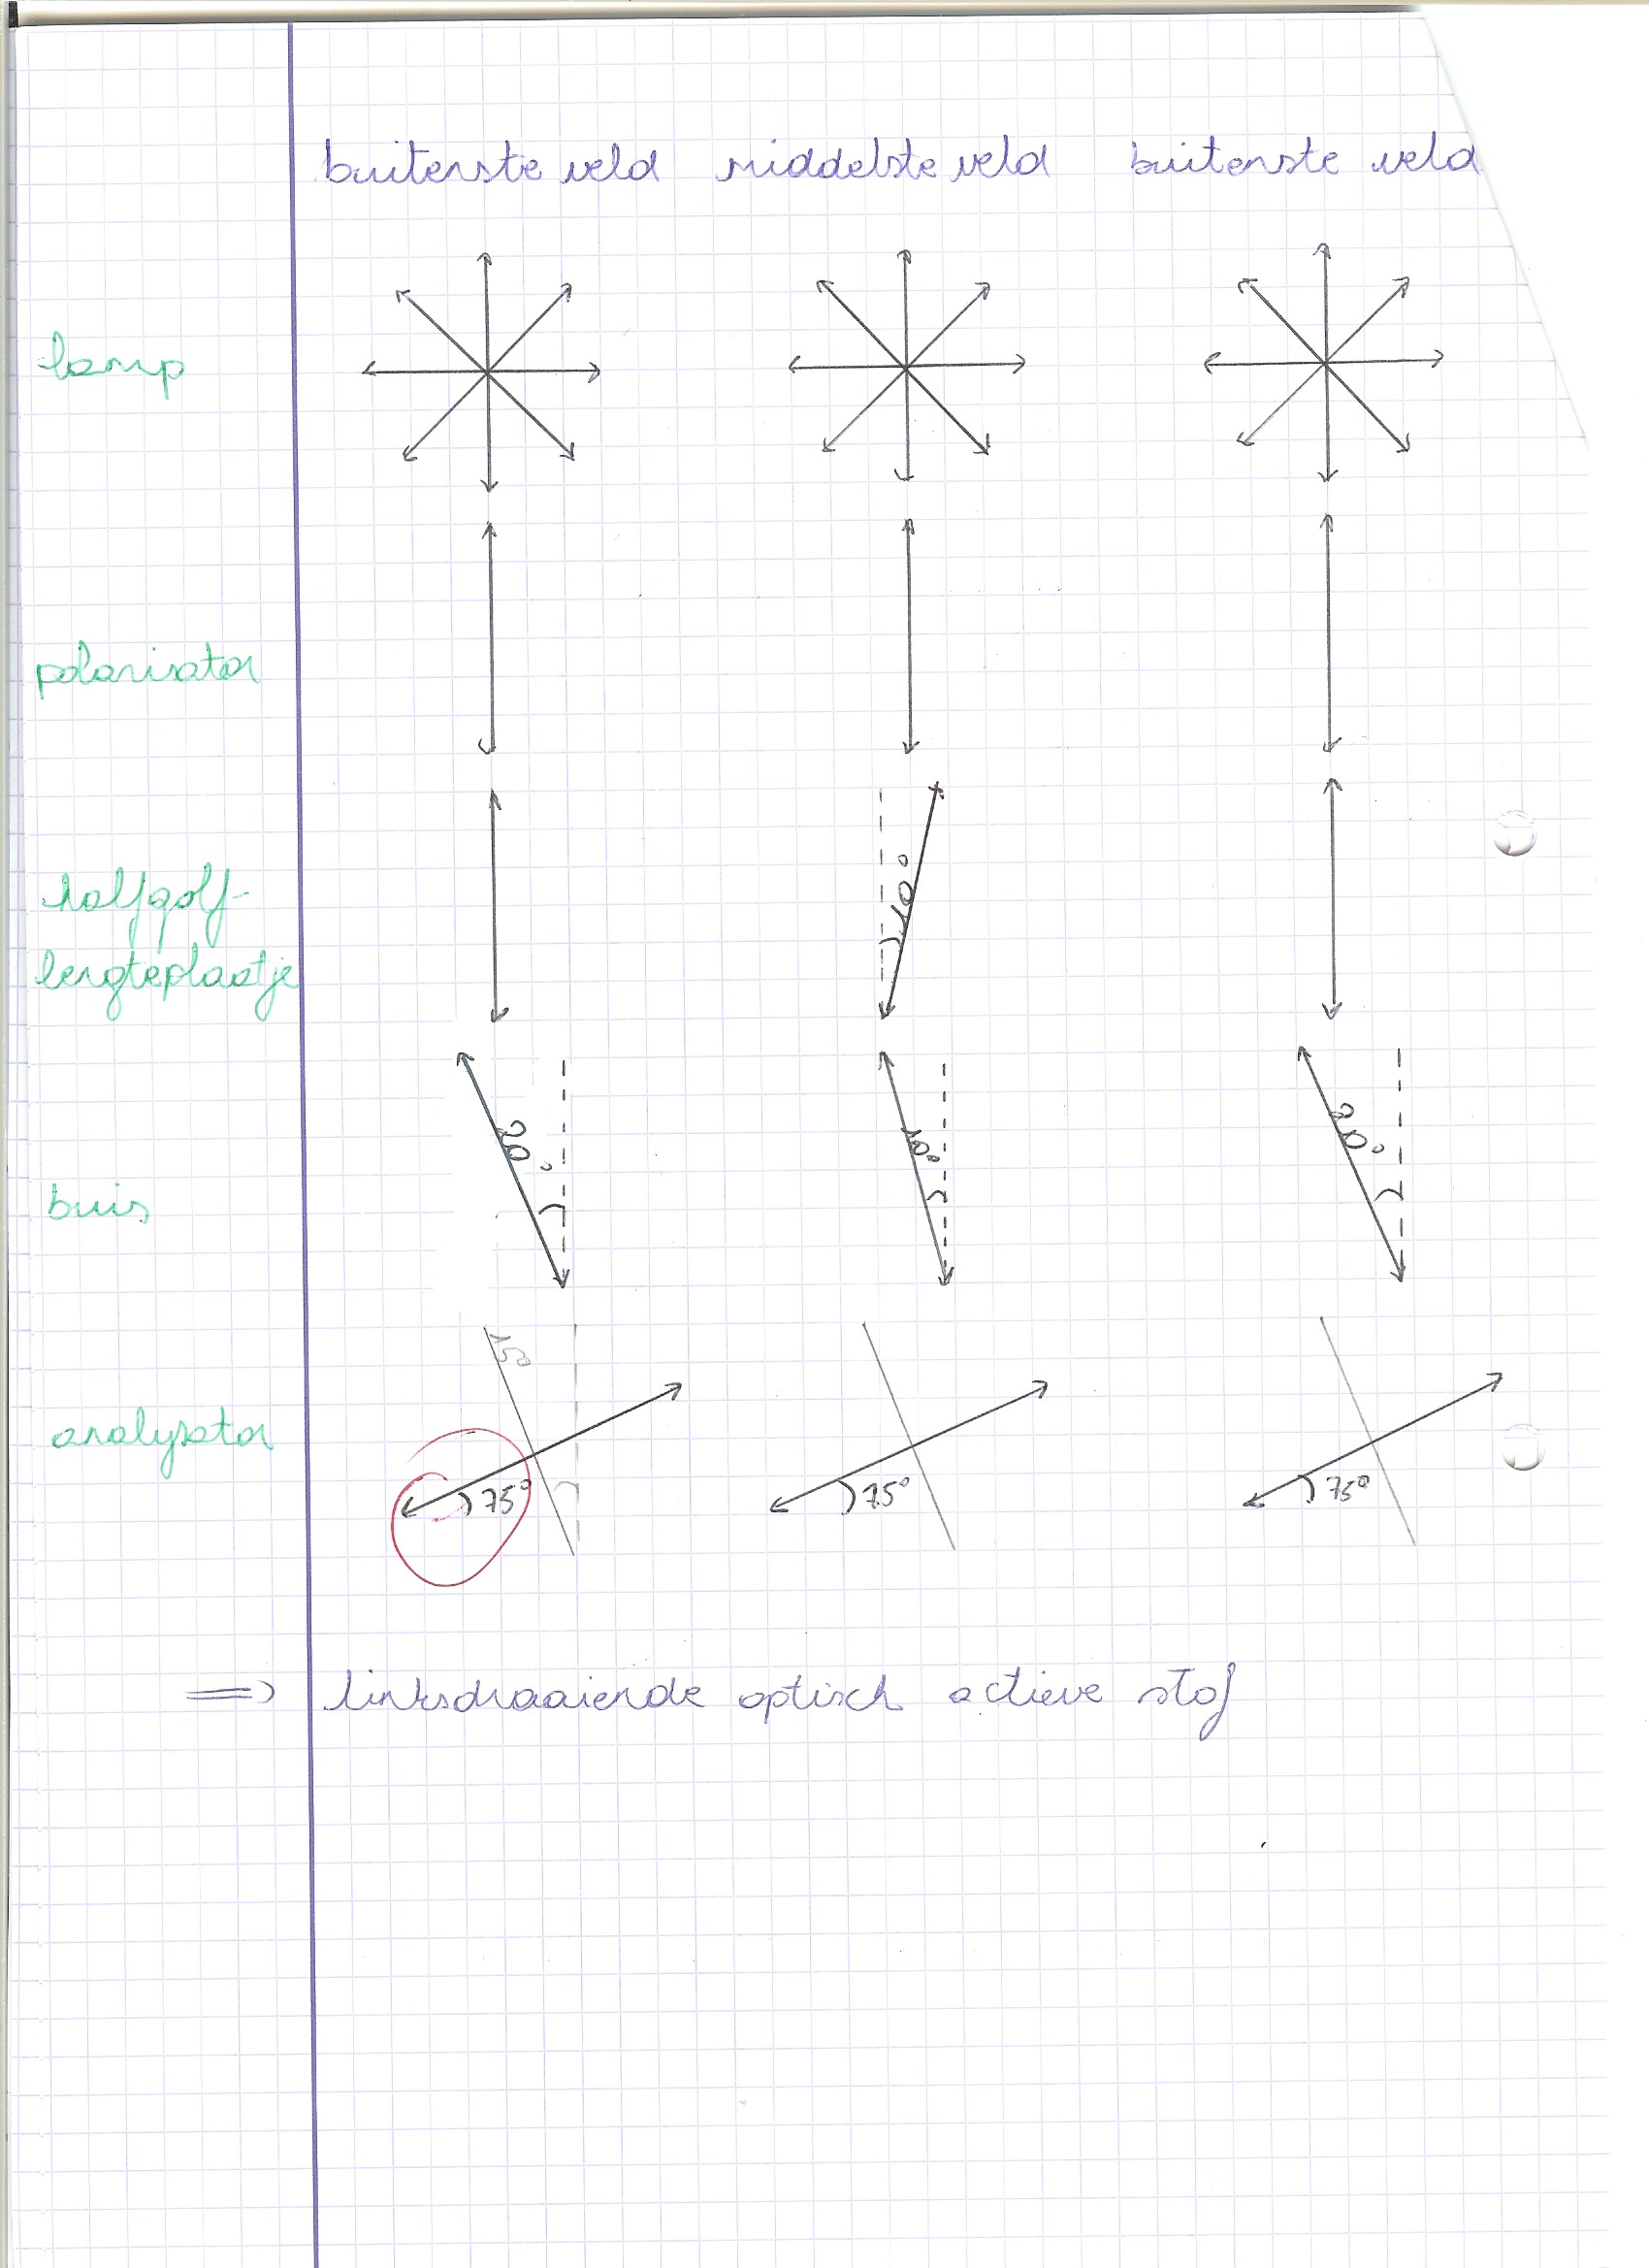 buitenste veld middelste veld buitenste veld
lamp
polarisator
halfgolf-
lengteplaatje
10°
buis
20°
10°
20°
analysator
15°
75°
75°
75°
=> linksdraaiende optisch actieve stof